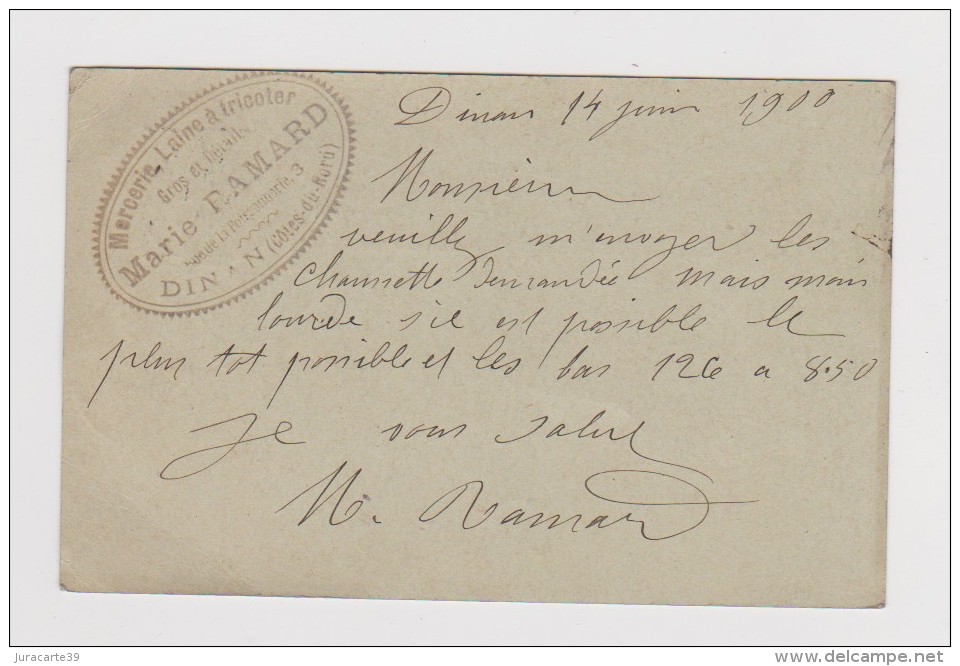 Mercerie Laine à tricoter
Gros et Détail
Marie RAMARD
Rue de la Poissonnerie, 3
DINAN (Côtes-du-Nord)
Dinan 14 juin 1900
Monsieur
veuillz m'envoyer les
chaussette demandée mais moin
lourde s'il est possible le
plus tot possible et les bas 126 a 8.50
je vous salue
M. Ramard
juracarte39
http://www.delcampe.net